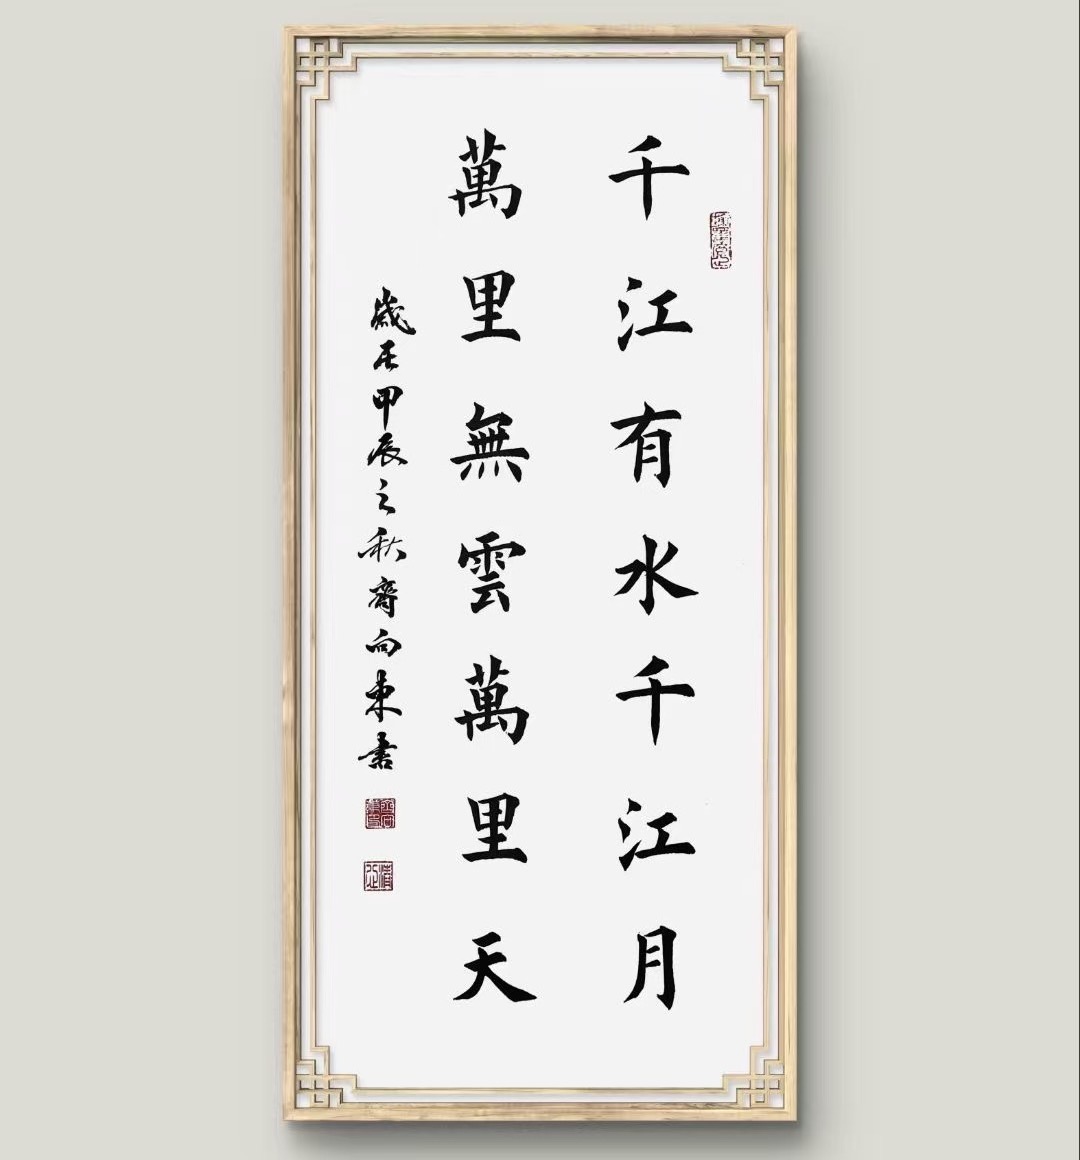 千江有水千江月
萬里無雲萬里天
歲在甲辰之秋齊向東書